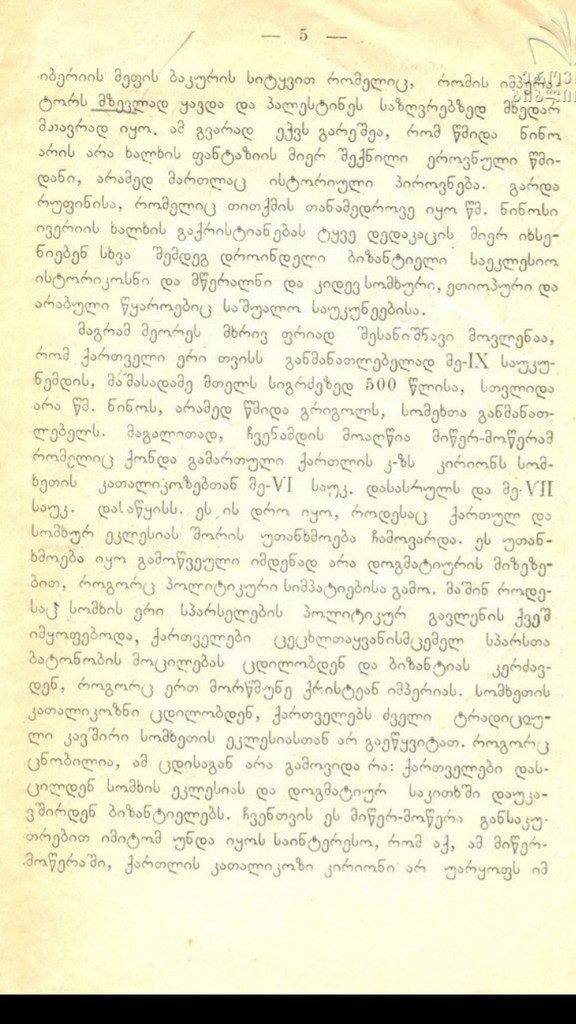 — 5 —
იბერიის მეფის ბაკურის სიტყვით რომელიც, რომის იმპერა-
ტორს მზევლად ყავდა და პალესტინეს საზღვრებზედ მხედარ
მთავრად იყო. ამ გვარად ეჭვს გარეშეა, რომ წმიდა ნინო
არის არა ხალხის ფანტაზიის მიერ შექნილი ეროვნული წმი-
დანი, არამედ მართლაც ისტორიული პიროვნება. გარდა
რუფინისა, რომელიც თითქმის თანამედროვე იყო წმ. ნინოსი
ივერიის ხალხის გაქრისტიანებას ტყვე დედაკაცის მიერ იხსე-
ნიებენ სხვა შემდეგ დროინდელი ბიზანტიელი საეკლესიო
ისტორიკოსნი და მწერალნი და კიდევ სომხური, ეთიოპური და
არაბული წყაროებიც საშუალო საუკუნეებისა.
მაგრამ მეორეს მხრივ ფრიად შესანიშნავი მოვლენაა,
რომ ქართველი ერი თვისს განმანათლებელად მე-IX საუკუ-
ნემდის, მაშასადამე მთელს სიგრძეზედ 500 წლისა, სთვლიდა
არა წმ. ნინოს, არამედ წმიდა გრიგოლს, სომეხთა განმანათ-
ლებელს. მაგალითად, ჩვენამდის მოაღწია მიწერ-მოწერამ
რომელიც ქონდა გამართული ქართლის კ-ზს კირიონს სომ-
ხეთის კათალიკოზებთან მე-VI საუკ. დასასრულს და მე-VII
საუკ. დასაწყისს. ეს ის დრო იყო, როდესაც ქართულ და
სომხურ ეკლესიას შორის უთანხმოება ჩამოვარდა. ეს უთან-
ხმოება იყო გამოწვეული იმდენად არა დოგმატიურის მიზეზე-
ბით, როგორც პოლიტიკური სიმპატიებისა გამო. მაშინ როდე-
საც სომხის ერი სპარსელების პოლიტიკურ გავლენის ქვეშ
იმყოფებოდა, ქართველები ცეცხლთაყვანისმცემელ სპარსთა
ბატონობის მოცილებას ცდილობდენ და ბიზანტიას კერძავ-
დენ, როგორც ერთ მორწმუნე ქრისტეან იმპერიას. სომხეთის
კათალიკოზნი ცდილობდენ, ქართველებს ძველი ტრადიციუ-
ლი კავშირი სომხეთის ეკლესიასთან არ გაეწყვიტათ. როგორც
ცნობილია, ამ ცდისაგან არა გამოვიდა რა: ქართველები დას-
ცილდენ სომხის ეკლესიას და დოგმატიურ საკითხში დაუკა-
ვშირდენ ბიზანტიელებს. ჩვენთვის ეს მიწერ-მოწერა განსაკუ-
თრებით იმიტომ უნდა იყოს საინტერესო, რომ აქ, ამ მიწერ-
მოწერაში, ქართლის კათალიკოზი კირიონი არ უარყოფს იმ